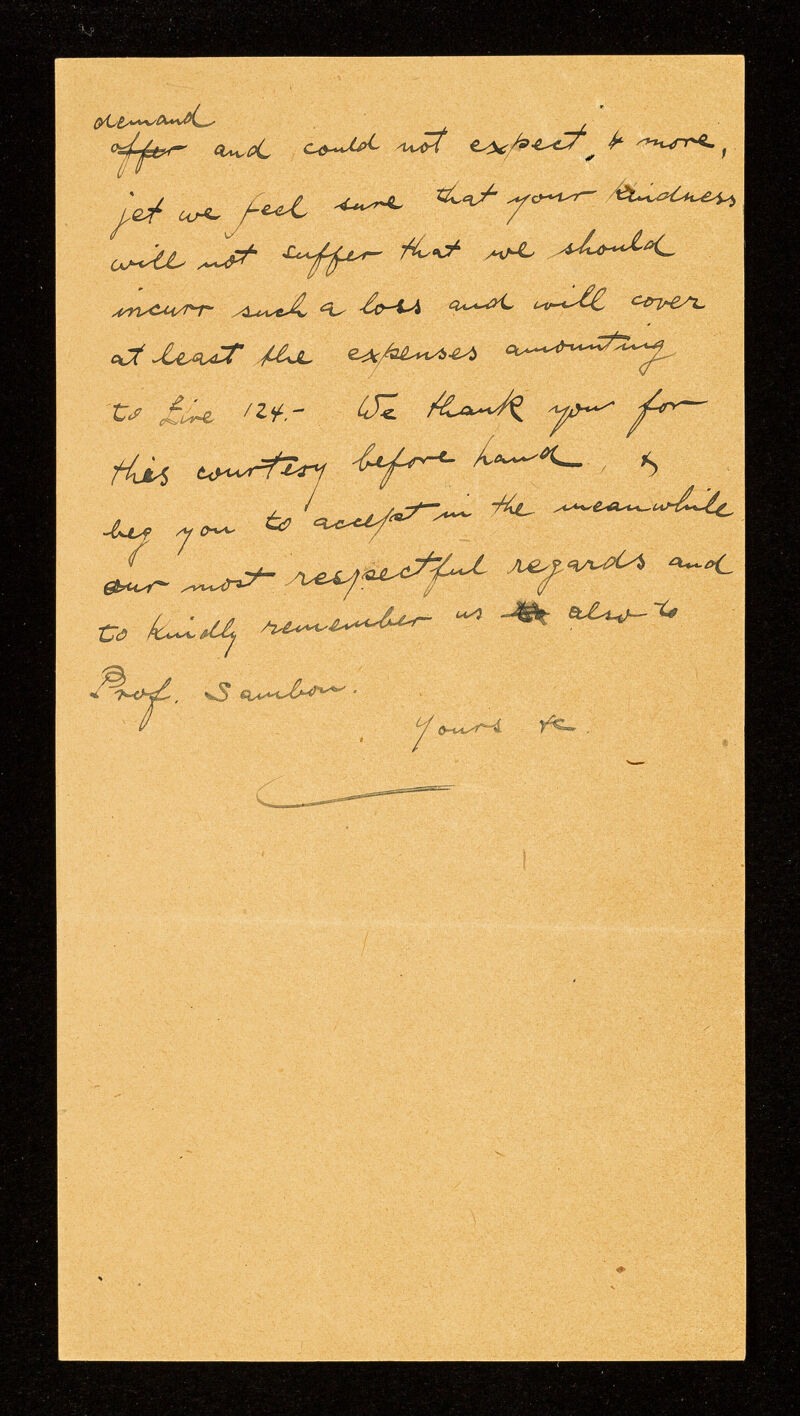 demand
offer and could not expect, & more,
jet we feel sure that your kindness
will not suffer that we should
incurr such a loss and will cover
at least the expenses amounting
to Lire 124.- We thank you for
this courtesy before hand, &
beg you to accept in the meanwhile
our most respectful regards and
to kindly remember us to also to
Prof. Sambon.
Yours &c